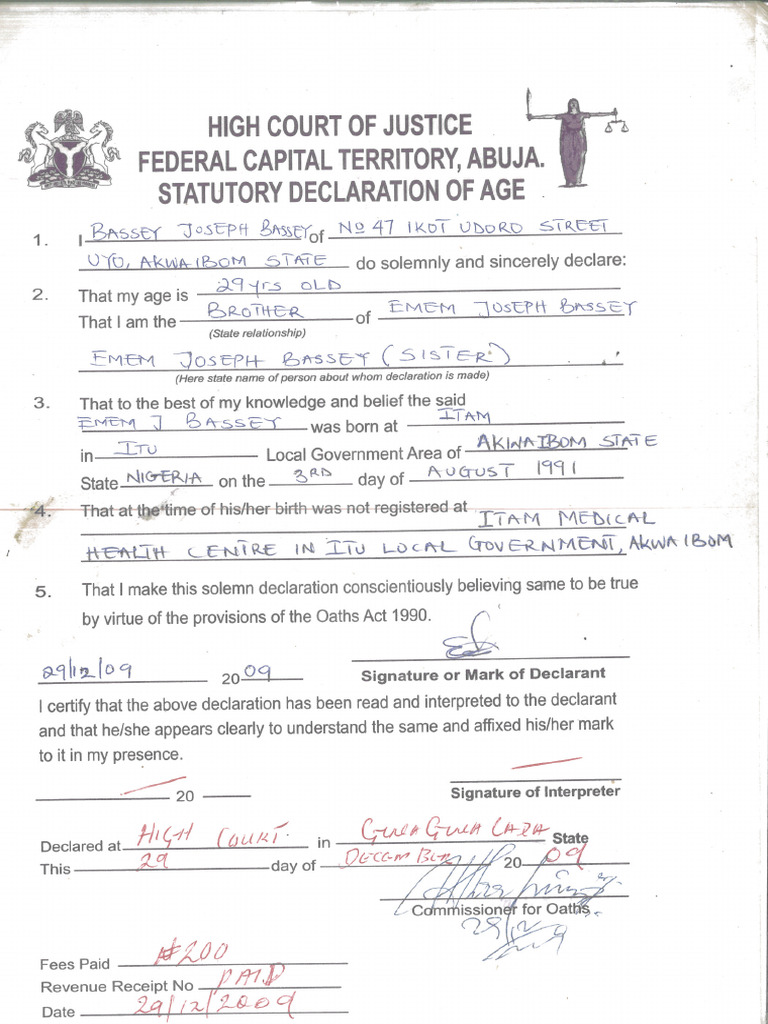 HIGH COURT OF JUSTICE
FEDERAL CAPITAL TERRITORY, ABUJA.
STATUTORY DECLARATION OF AGE
1. I BASSEY JOSEPH BASSEY of No 47 IKOT UDORO STREET
UYO, AKWAIBOM STATE do solemnly and sincerely declare:
2. That my age is 29yrs OLD
That I am the BROTHER of EMEM JOSEPH BASSEY
(State relationship)
EMEM JOSEPH BASSEY (SISTER)
(Here state name of person about whom declaration is made)
3. That to the best of my knowledge and belief the said
EMEM J BASSEY was born at ITAM
in ITU Local Government Area of AKWAIBOM STATE
State NIGERIA on the 3RD day of AUGUST 1991
4. That at the time of his/her birth was not registered at ITAM MEDICAL
HEALTH CENTRE IN ITU LOCAL GOVERNMENT, AKWAIBOM
5. That I make this solemn declaration conscientiously believing same to be true
by virtue of the provisions of the Oaths Act 1990.
29/12/09 2009
Signature or Mark of Declarant
I certify that the above declaration has been read and interpreted to the declarant
and that he/she appears clearly to understand the same and affixed his/her mark
to it in my presence.
20
Signature of Interpreter
Declared at HIGH COURT. in State
This 29 day of DECEMBER 2009
Commissioner for Oaths
Fees Paid ₦200
Revenue Receipt No PAID
Date 29/12/2009